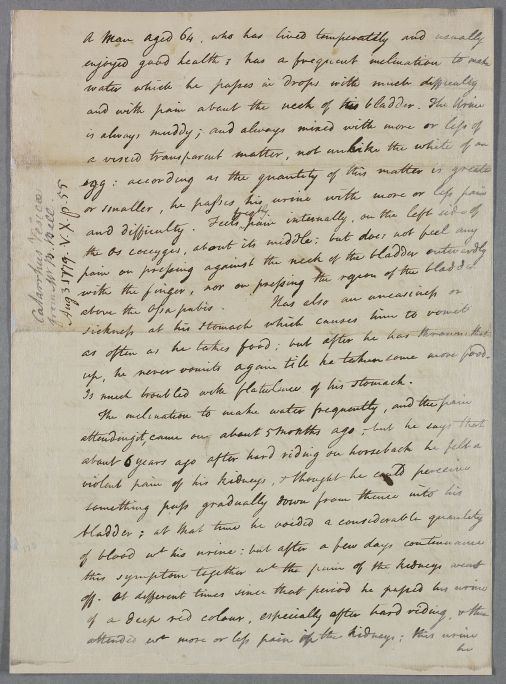 A Man aged 64, who has lived temperately and usually
enjoyed good health; has a frequent inclination to make
water which he passes in drops with much difficulty
and with pain about the neck of his bladder. The Urine
is always muddy; and always mixed with more or less of
a viscid transparent matter, not unlike the white of an
egg: according as the quantity of this matter is greater
or smaller, he passes his urine with more or less pain
and difficulty. Feels pain internally, on the left side of
the Os coccyges, about its middle: but does not feel any
pain on pressing against the neck of the bladder outwardly
with the finger, nor on pressing the region of the bladder
above the Ossa pubis. Has also an uneasiness or
sickness at his stomach which causes him to vomit
as often as he takes food: but after he has thrown that
up, he never vomits again till he taken some more food.
Is much troubled with flatulence of his stomach.
The inclination to make water frequently, and the pain
attending it, came on about 5 months ago, but he says that
about 6 years ago after hard riding on horseback he felt a
violent pain of his kidneys, & thought he could perceive
something pass gradually down from thence into his
bladder; at that time he voided a considerable quantity
of blood wt his urine: but after a few days continuance
this symptom together wt the pain of the kidneys went
off. At different times since that period he passed his urine
of a deep red colour, especially after hard riding, & then
attended wt more or less pain of the kidneys; this urine
he
Catarrhus Vesicæ
from Mr B. Bell
Aug 3 1779. V. X. p. 55